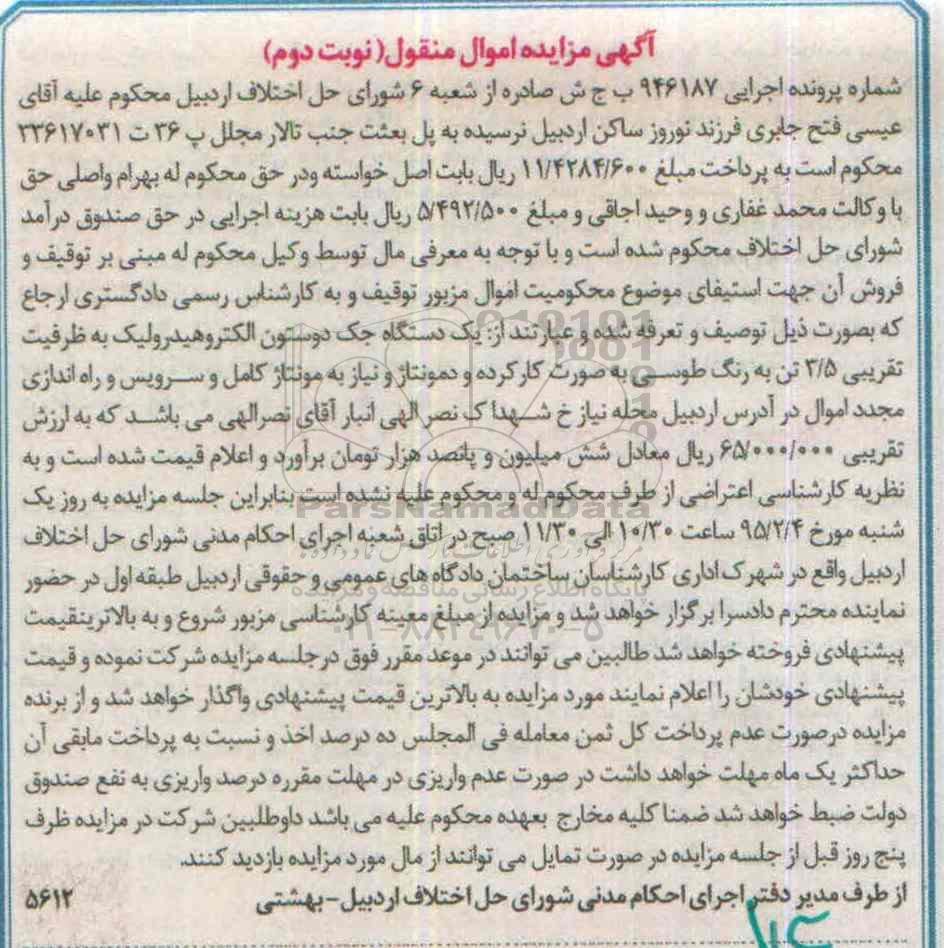 آگهی مزایده اموال منقول( نوبت دوم)
شماره پرونده اجرایی ۹۴۶۱۸۷ ب ج ش صادره از شعبه ۶ شورای حل اختلاف اردبیل محکوم علیه آقای
عیسی فتح جابری فرزند نوروز ساکن اردبیل نرسیده به پل بعثت جنب تالار مجلل پ ۳۶ ت ۳۳۶۱۷۰۳۱
محکوم است به پرداخت مبلغ ۱۱/۴۲۸۴/۶۰۰ ریال بابت اصل خواسته ودر حق محکوم له بهرام واصلی حق
با وکالت محمد غفاری و وحید اجاقی و مبلغ ۵/۴۹۲/۵۰۰ ریال بابت هزینه اجرایی در حق صندوق درآمد
شورای حل اختلاف محکوم شده است و با توجه به معرفی مال توسط وکیل محکوم له مبنی بر توقیف و
فروش آن جهت استیفای موضوع محکومیت اموال مزبور توقیف و به کارشناس رسمی دادگستری ارجاع
که بصورت ذیل توصیف و تعرفه شده و عبارتند از: یک دستگاه جک دوستون الکتروهیدرولیک به ظرفیت
تقریبی ۳/۵ تن به رنگ طوسی به صورت کارکرده و دمونتاژ و نیاز به مونتاژ کامل و سرویس و راه اندازی
مجدد اموال در آدرس اردبیل محله نیاز خ شهدا ک نصر الهی انبار آقای نصرالهی می باشد که به ارزش
تقریبی ۶۵/۰۰۰/۰۰۰ ریال معادل شش میلیون و پانصد هزار تومان برآورد و اعلام قیمت شده است و به
نظریه کارشناسی اعتراضی از طرف محکوم له و محکوم علیه نشده است بنابراین جلسه مزایده به روز یک
شنبه مورخ ۹۵/۲/۴ ساعت ۱۰/۳۰ الی ۱۱/۳۰ صبح در اتاق شعبه اجرای احکام مدنی شورای حل اختلاف
اردبیل واقع در شهرک اداری کارشناسان ساختمان دادگاه های عمومی و حقوقی اردبیل طبقه اول در حضور
نماینده محترم دادسرا برگزار خواهد شد و مزایده از مبلغ معینه کارشناسی مزبور شروع و به بالاترینقیمت
پیشنهادی فروخته خواهد شد طالبین می توانند در موعد مقرر فوق درجلسه مزایده شرکت نموده و قیمت
پیشنهادی خودشان را اعلام نمایند مورد مزایده به بالاترین قیمت پیشنهادی واگذار خواهد شد و از برنده
مزایده درصورت عدم پرداخت کل ثمن معامله فی المجلس ده درصد اخذ و نسبت به پرداخت مابقی آن
حداکثر یک ماه مهلت خواهد داشت در صورت عدم واریزی در مهلت مقرره درصد واریزی به نفع صندوق
دولت ضبط خواهد شد ضمنا کلیه مخارج بعهده محکوم علیه می باشد داوطلبین شرکت در مزایده ظرف
پنج روز قبل از جلسه مزایده در صورت تمایل می توانند از مال مورد مزایده بازدید کنند.
از طرف مدیر دفتر اجرای احکام مدنی شورای حل اختلاف اردبیل-بهشتی ۵۶۱۲
ParsNamadData
پایگاه اطلاع رسانی مناقصه و مزایده